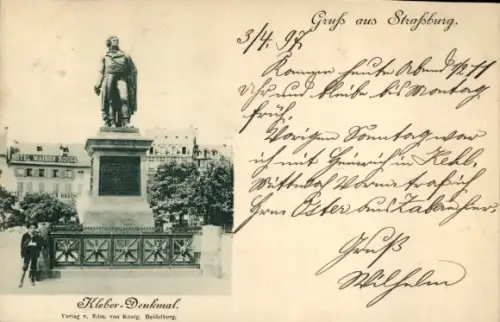 Gruß aus Straßburg.
3/4. 97.
Komme heute Abend 1/2 11
Uhr und bleibe bis Montag
früh.
Vorigen Sonntag war
ich mit Heinrich in Kehl.
Mittwoch Vorm. traf ich
Hrn Oster aus
Gruß
Wilhelm
HOTEL MAISON ROUGE
Kleber-Denkmal.
Verlag v. Edm. von König, Heidelberg.